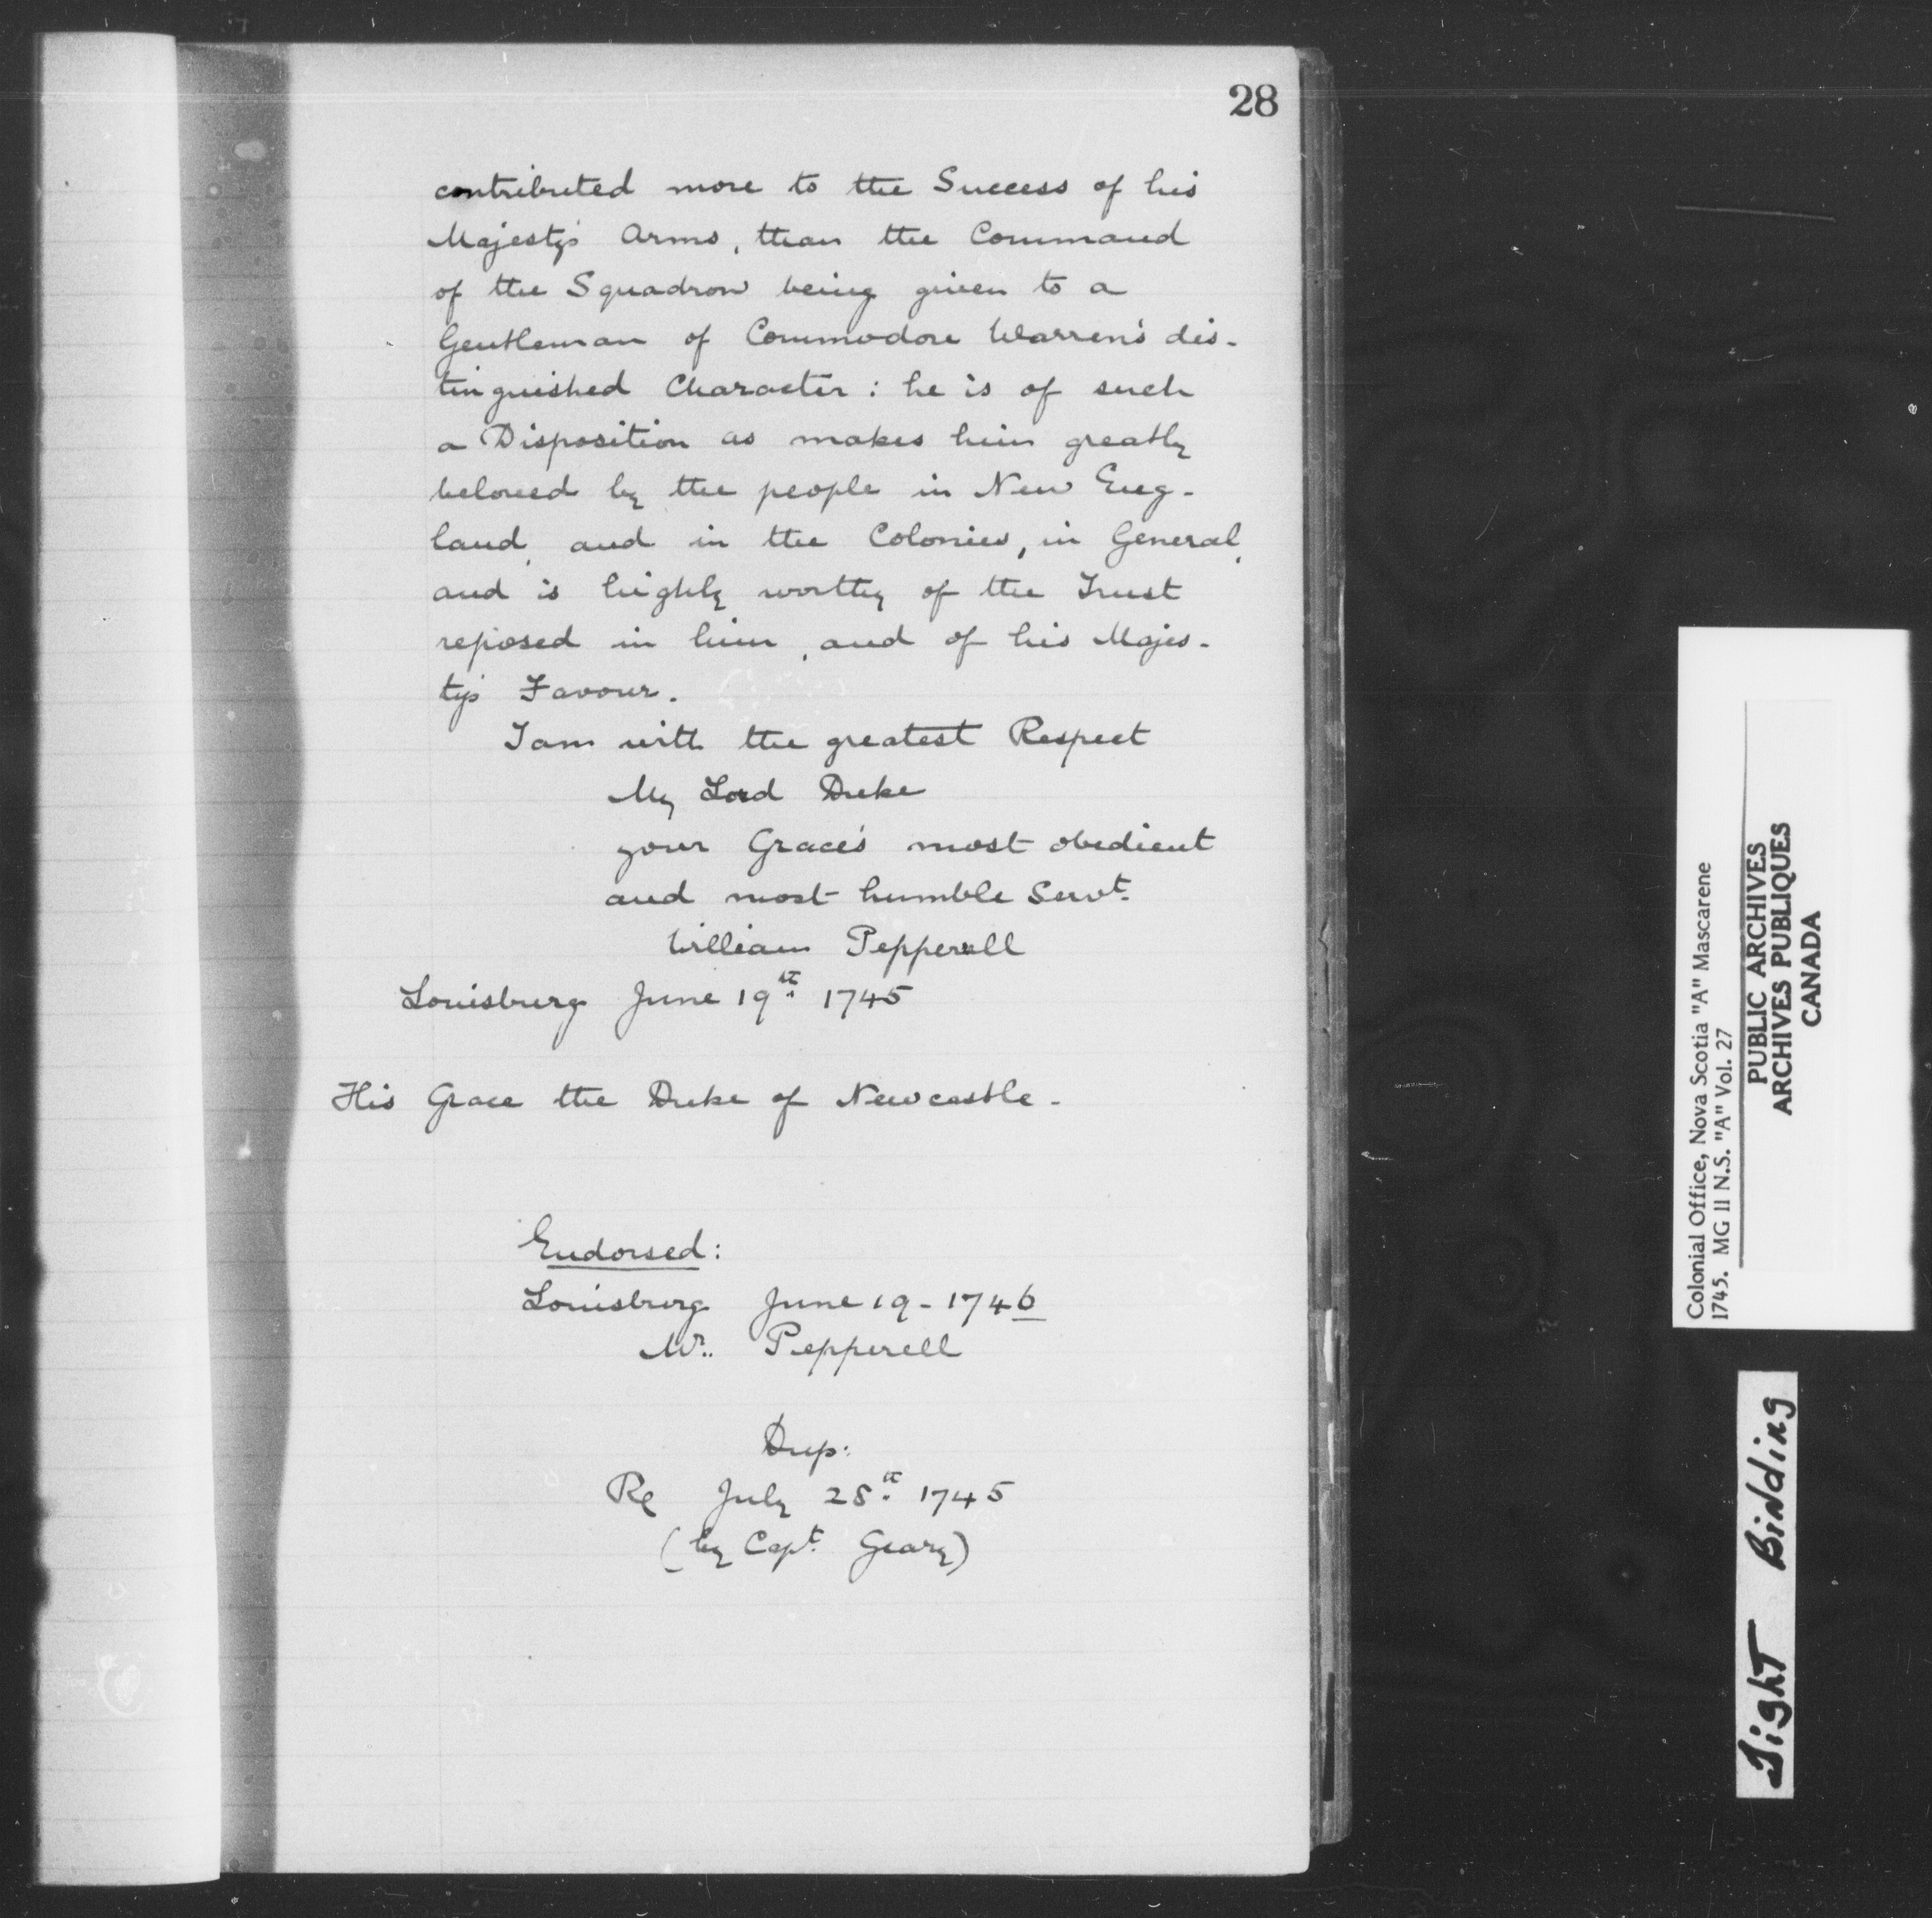 28
contributed more to the Success of his
Majesty's Arms, than the Command
of the Squadron being given to a
Gentleman of Commodore Warren's dis-
tinguished Character: he is of such
a Disposition as makes him greatly
beloved by the people in New Eng-
land, and in the Colonies, in General,
and is highly worthy of the Trust
reposed in him, and of his Majes-
ty's Favour.
I am with the greatest Respect
My Lord Duke
your Grace's most obedient
and most humble Servt.
William Pepperrell
Louisburg June 19th 1745
His Grace the Duke of Newcastle.
Endorsed:
Louisburg June 19 - 1746
Mr. Pepperell
Dup:
Re July 28th 1745
(by Capt. Geary)
Colonial Office, Nova Scotia "A" Mascarene
1745. MG II N.S. "A" Vol. 27
PUBLIC ARCHIVES
ARCHIVES PUBLIQUES
CANADA
Tight Binding